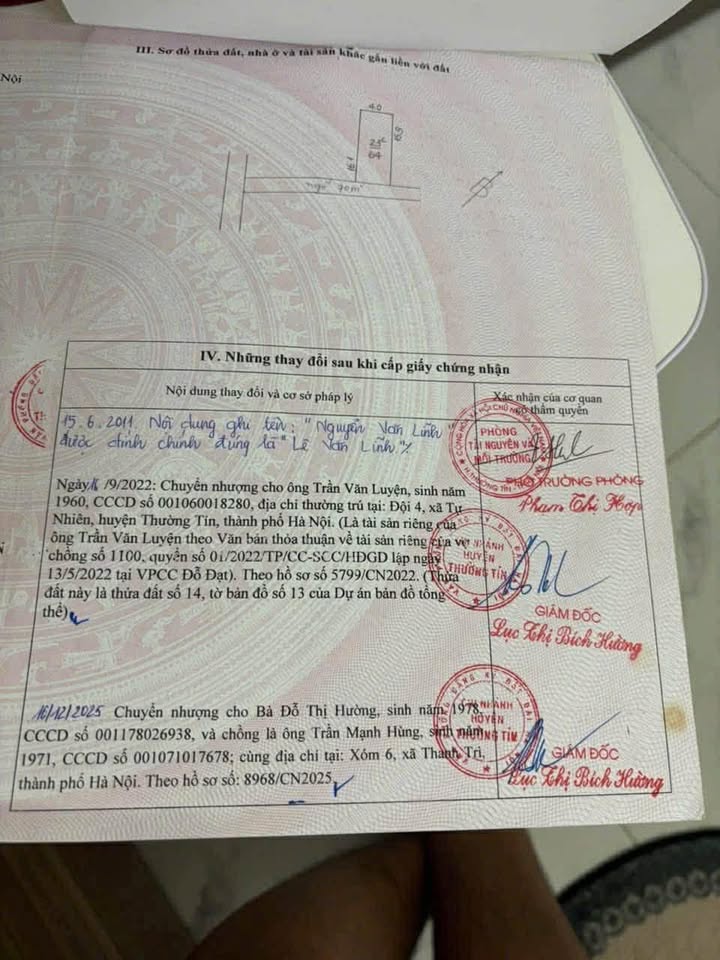 III. Sơ đồ thửa đất, nhà ở và tài sản khác gắn liền với đất
Nội
4.0
15.9
25ᶜ
64
16.1
ngõ 70m
B
IV. Những thay đổi sau khi cấp giấy chứng nhận
Nội dung thay đổi và cơ sở pháp lý
Xác nhận của cơ quan
có thẩm quyền
15.6.2011. Nội dung ghi tên: "Nguyễn Văn Lĩnh"
được đính chính đúng là "Lê Văn Lĩnh"./.
PHÒNG
TÀI NGUYÊN VÀ
MÔI TRƯỜNG
PHÓ TRƯỞNG PHÒNG
Phạm Thị Hợp
Ngày 16/9/2022: Chuyển nhượng cho ông Trần Văn Luyện, sinh năm
1960, CCCD số 001060018280, địa chỉ thường trú tại: Đội 4, xã Tự
Nhiên, huyện Thường Tín, thành phố Hà Nội. (Là tài sản riêng của
ông Trần Văn Luyện theo Văn bản thỏa thuận về tài sản riêng của vợ
chồng số 1100, quyển số 01/2022/TP/CC-SCC/HĐGD lập ngày
13/5/2022 tại VPCC Đỗ Đạt). Theo hồ sơ số 5799/CN2022. (Thửa
đất này là thửa đất số 14, tờ bản đồ số 13 của Dự án bản đồ tổng
thể)
CHI NHÁNH
HUYỆN
THƯỜNG TÍN
GIÁM ĐỐC
Lục Thị Bích Hường
16/12/2025 Chuyển nhượng cho Bà Đỗ Thị Hường, sinh năm 1978,
CCCD số 001178026938, và chồng là ông Trần Mạnh Hùng, sinh năm
1971, CCCD số 001071017678; cùng địa chỉ tại: Xóm 6, xã Thanh Trì,
thành phố Hà Nội. Theo hồ sơ số: 8968/CN2025
CHI NHÁNH
HUYỆN
THƯỜNG TÍN
GIÁM ĐỐC
Lục Thị Bích Hường